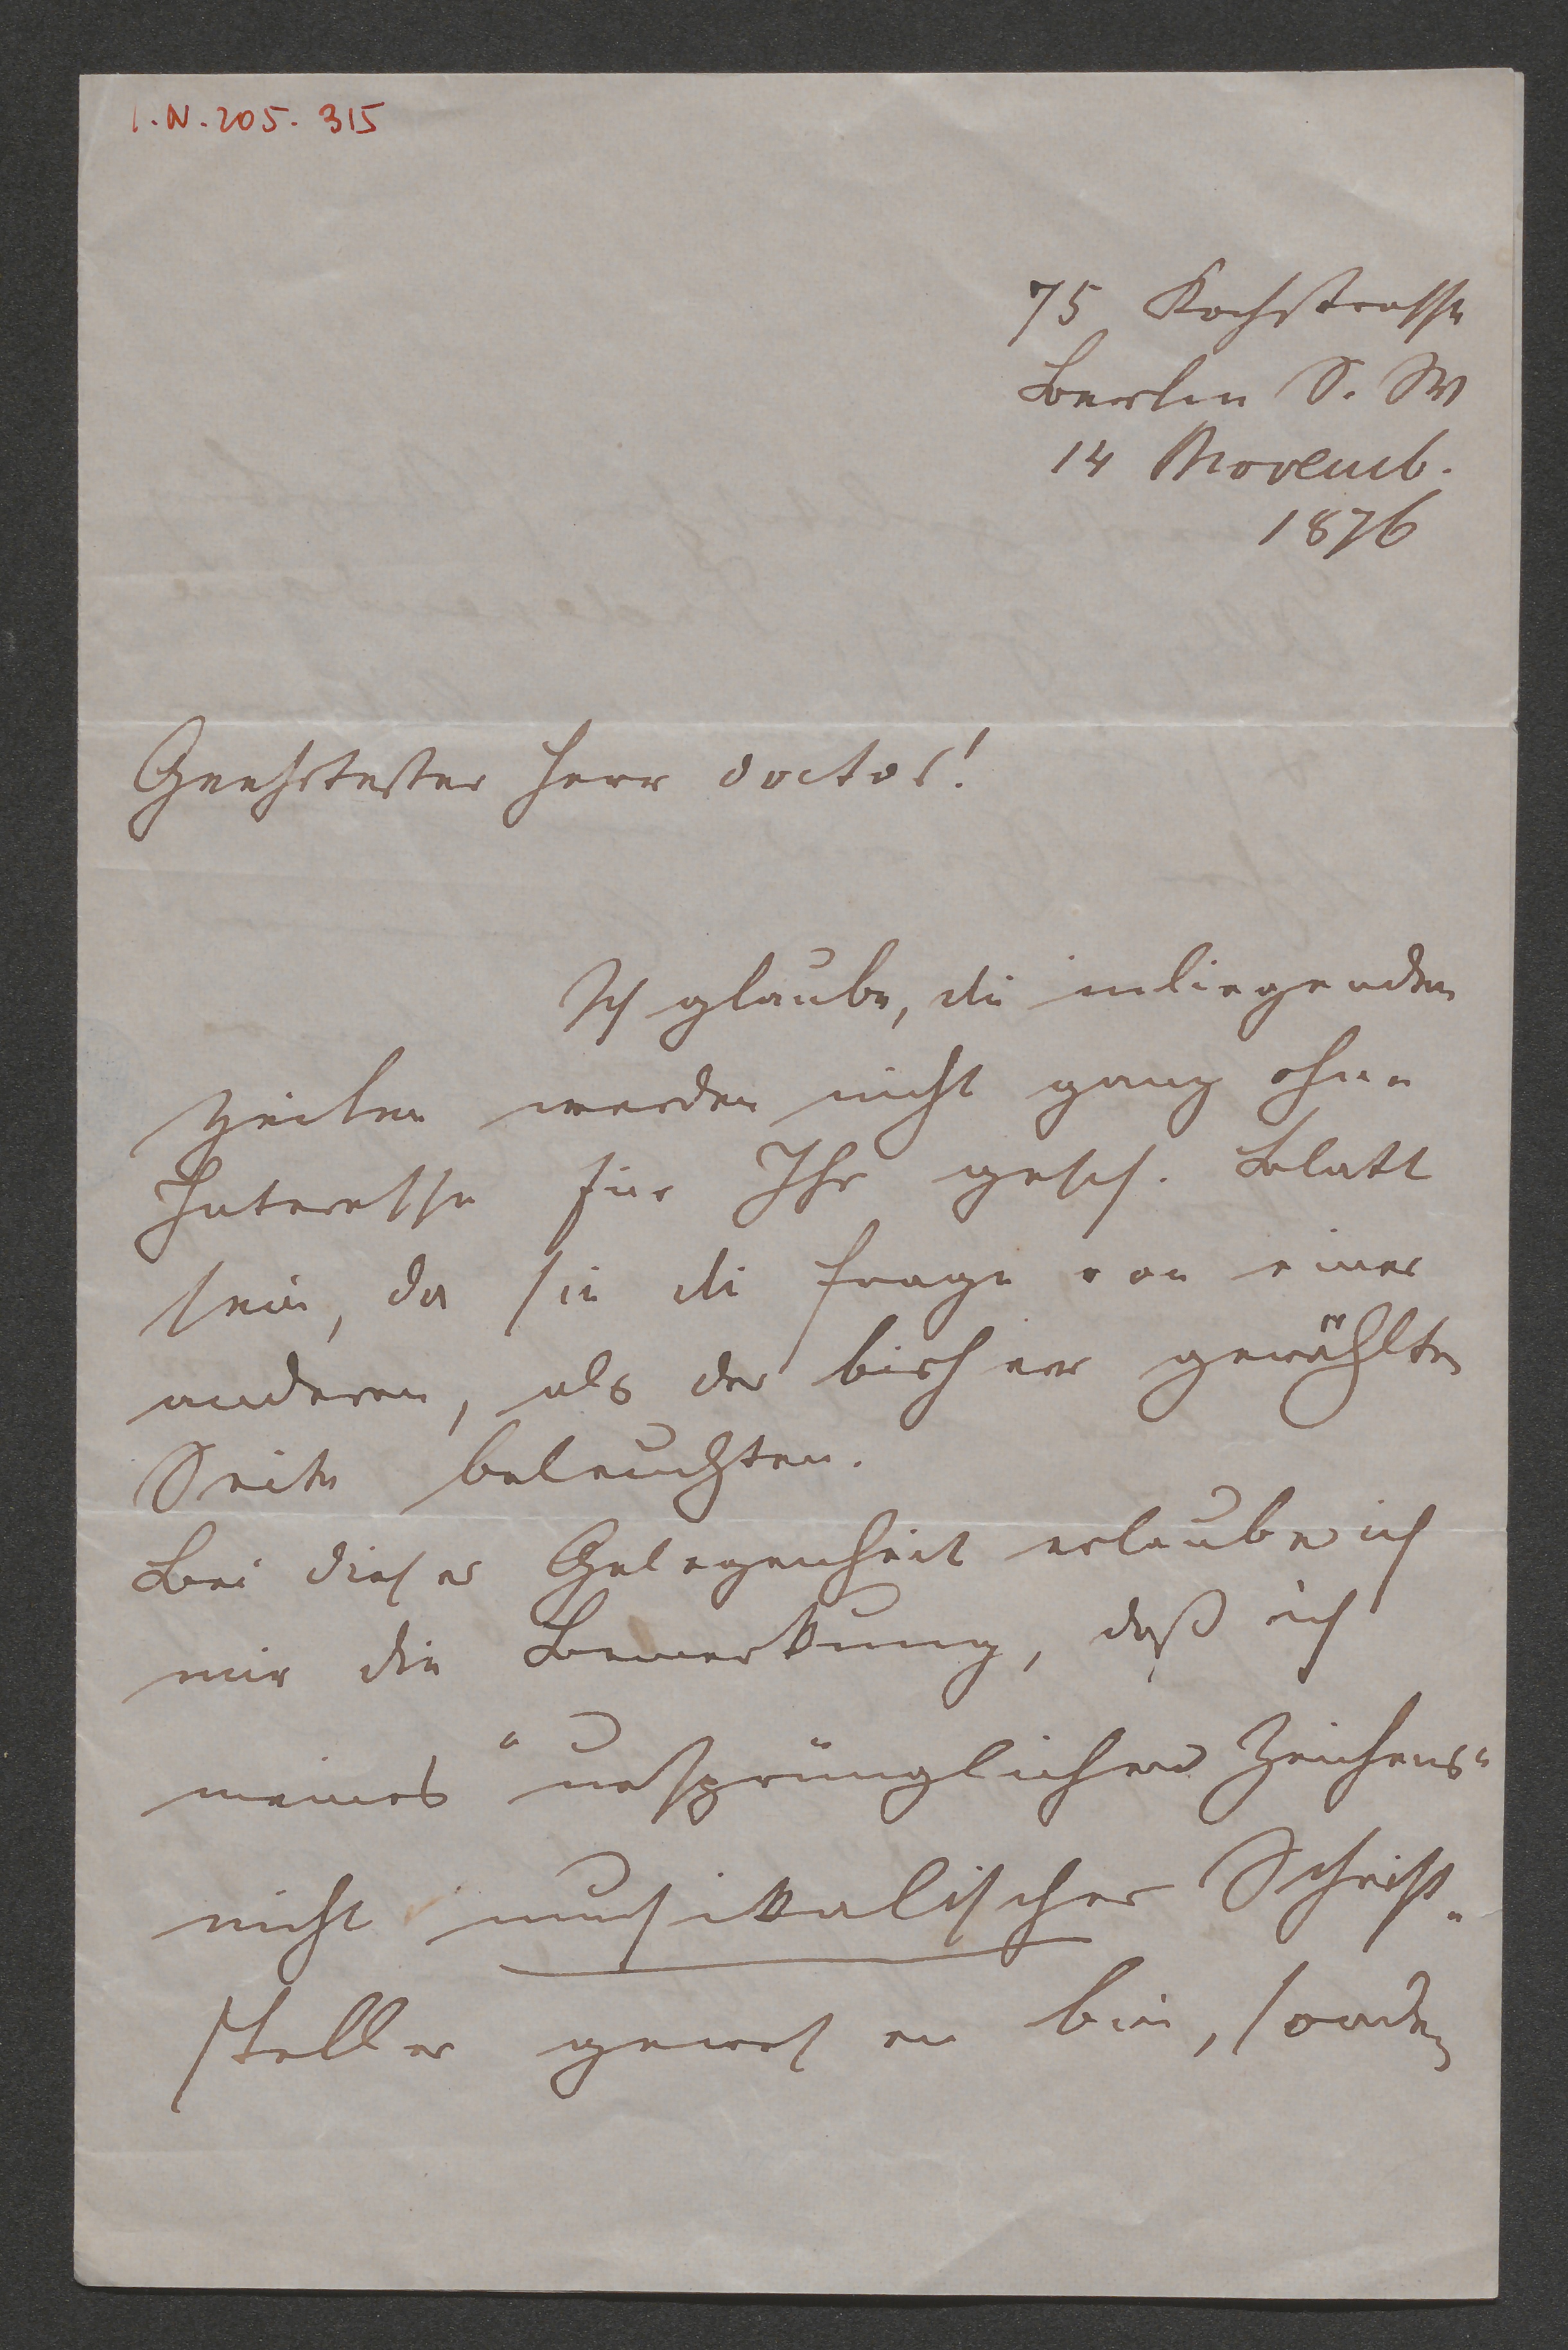 I.N. 205.315
75 Kochstrasse
Berlin S. W
14 Novemb.
1876
Geehrtester Herr Doctor!
Ich glaube, die inliegenden
Zeilen werden nicht ganz ohne
Interesse für Ihr gesch. Blatt
sein, da sie die Frage von einer
anderen, als der bisher gewählten
Seite beleuchten.
Bei dieser Gelegenheit erlaube ich
mir die Bemerkung, daß ich
meines "ursprünglichen Zeichens"
nicht musikalischer Schrift-
steller gewesen bin, sondern